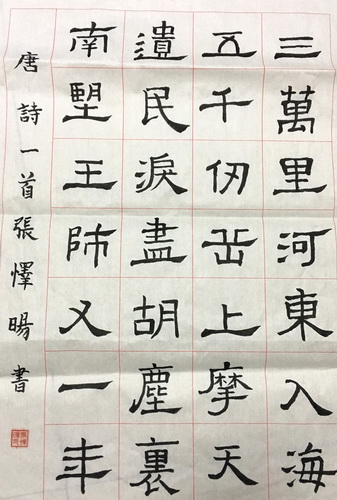 三萬里河東入海
五千仞岳上摩天
遺民淚盡胡塵裏
南朢王師又一年
唐詩一首張懌暘書